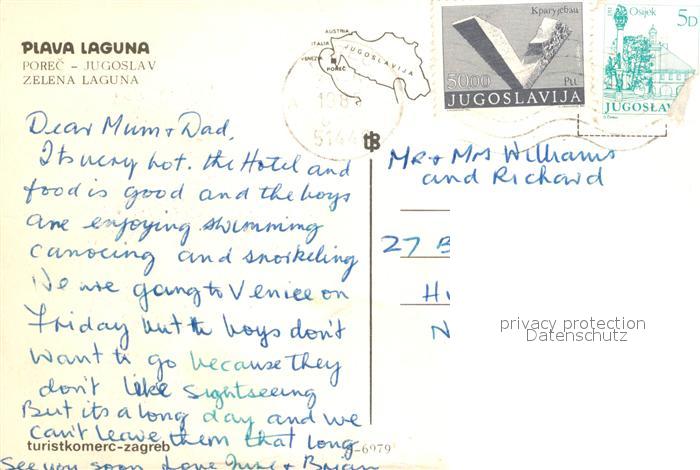 PLAVA LAGUNA
POREČ – JUGOSLAV
ZELENA LAGUNA
AUSTRIA
ITALIA
VENEZIA
POREČ
JUGOSLAVIJA
198
5144
Крагујевац
50.00
Pu
JUGOSLAVIJA
Osijek
5D
JUGOSLAV
Dear Mum & Dad,
Its very hot. the Hotel and
food is good and the boys
are enjoying swimming
canoeing and snorkeling
We are going to Venice on
Friday but the boys don't
want to go because they
don't like sightseeing
But its a long day and we
can't leave them that long
See you soon Love June & Brian
Mr & Mrs Williams
and Richard
27 B
H
N
privacy protection
Datenschutz
turistkomerc-zagreb
-6979